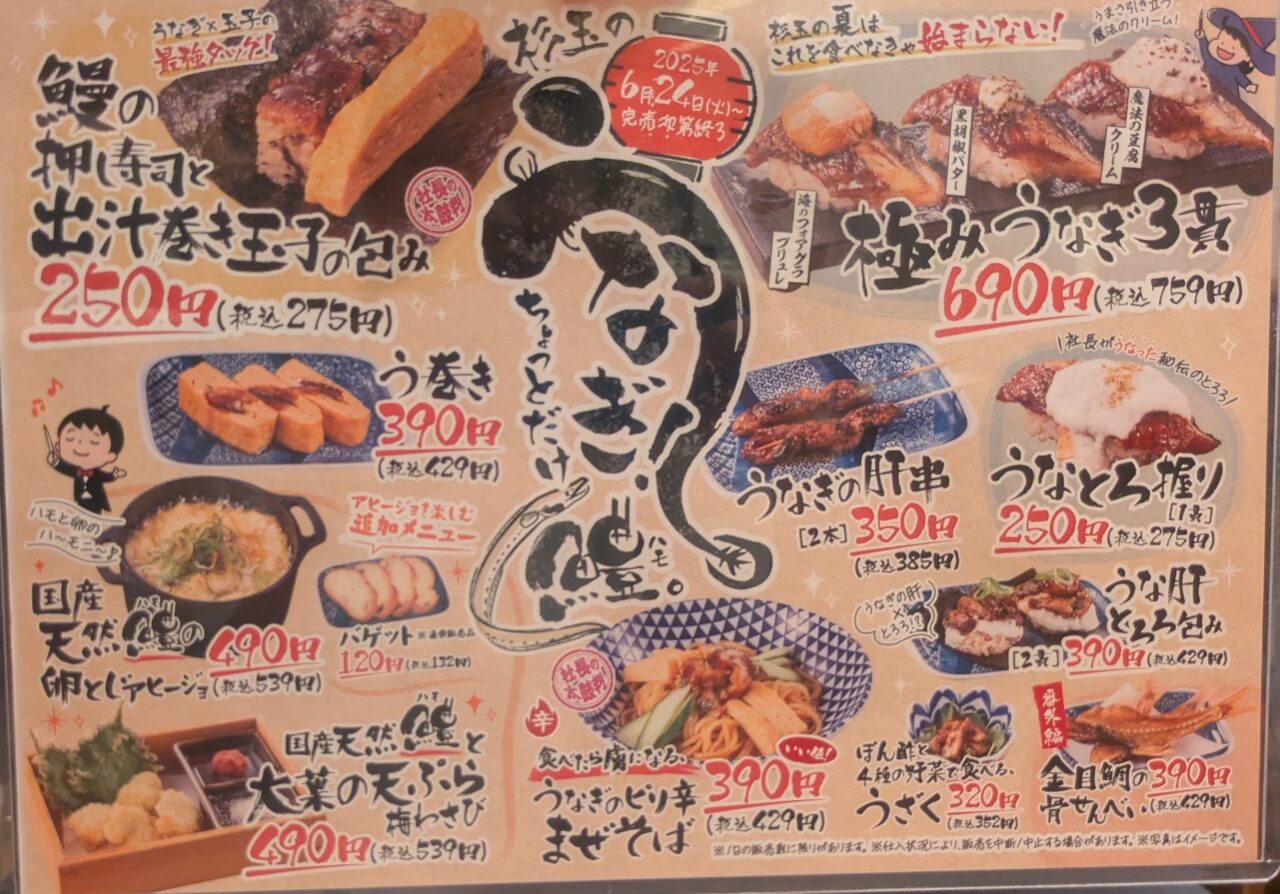 うなぎ×玉子の
最強タッグ!
鰻の
押し寿司と
出汁巻き玉子の包み
社長の
太鼓判
250円(税込275円)
杉玉の
うなぎ、
ちょっとだけ
鱧。
ハモ
2025年
6月24日(火)〜
完売次第終了
杉玉の夏は
これを食べなきゃ始まらない!
うまさ引き立つ
魔法のクリーム!
海のフォアグラ
ブリュレ
黒胡椒バター
魔法の豆腐
クリーム
極みうなぎ3貫
690円(税込759円)
う巻き
390円
(税込429円)
うなぎの肝串
[2本]350円
(税込385円)
社長がうなった秘伝のとろろ
うなとろ握り
[1貫]
250円(税込275円)
ハモと卵の
ハ〜モニ〜♪
国産
天然鱧の
ハモ
卵とじアヒージョ
490円
(税込539円)
アヒージョを楽しむ
追加メニュー
バゲット ※通常販売品
120円(税込132円)
うなぎの肝
×
とろろ!?
うな肝
とろろ包み
[2貫]390円(税込429円)
国産天然鱧と
ハモ
大葉の天ぷら
梅わさび
490円(税込539円)
社長の
太鼓判
辛
食べたら虜になる、
うなぎのピリ辛
まぜそば
いい組!
390円
(税込429円)
ぽん酢と
4種の野菜で食べる、
うざく
320円
(税込352円)
番外編
金目鯛の
骨せんべい
390円
(税込429円)
※1日の販売数に限りがあります。※仕入状況により、販売を中断/中止する場合があります。※写真はイメージです。